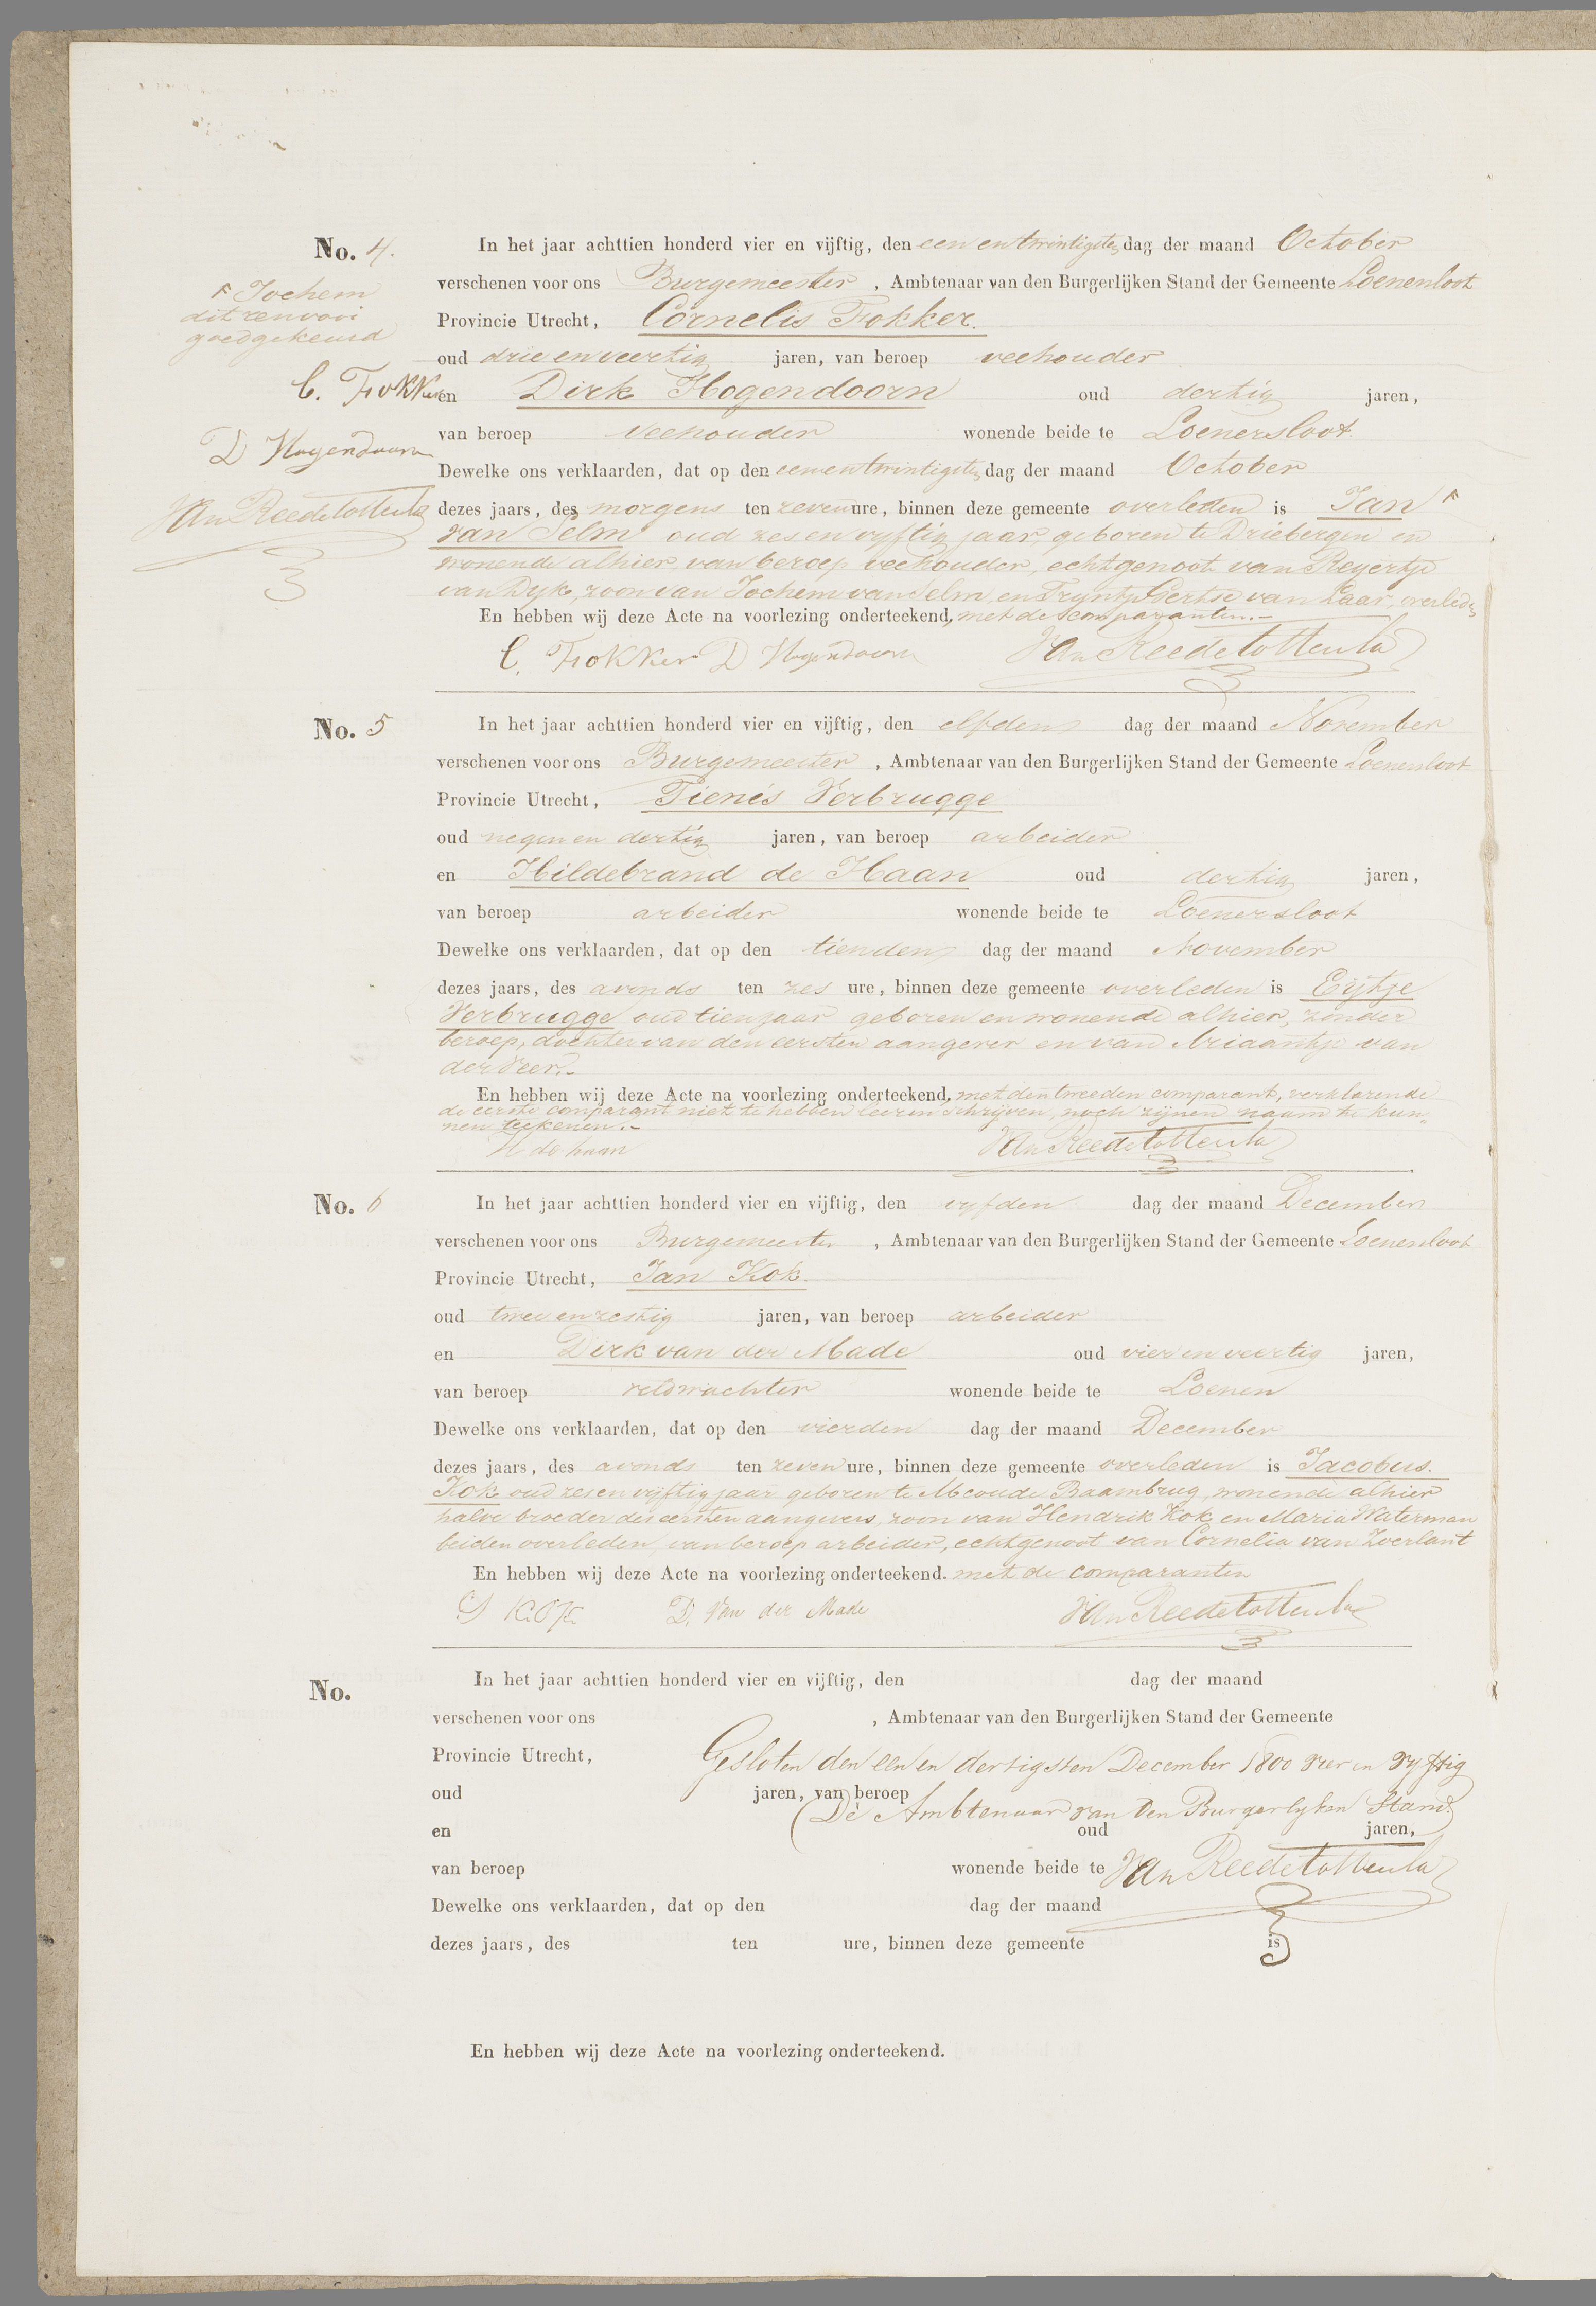 No. 4.
In het jaar achttien honderd vier en vijftig, den een en twintigsten dag der maand October
verschenen voor ons Burgemeester, Ambtenaar van den Burgerlijken Stand der Gemeente Loenersloot
Provincie Utrecht, Cornelis Fokker.
oud drie en veertig jaren, van beroep veehouder
en Dirk Hogendoorn oud dertig jaren,
van beroep veehouder wonende beide te Loenersloot.
Dewelke ons verklaarden, dat op den een en twintigsten dag der maand October
dezes jaars, des morgens ten zeven ure, binnen deze gemeente overleden is Jan ۴
van Selm oud zes en vyftig jaar, geboren te Driebergen en
wonende alhier, van beroep veehouder, echtgenoot van Reyertje
van Dyk, zoon van Jochem van Selm, en Tryntje Gertse van Laar, overleden
En hebben wij deze Acte na voorlezing onderteekend, met de comparanten.-
C. Fokker D Hogendoorn Van Reede tot ter Aa
۴ Jochem
dit renvooi
goedgekeurd
C. Fokker
D Hogendoorn
Van Reede tot ter Aa
No. 5
In het jaar achttien honderd vier en vijftig, den elfden dag der maand November
verschenen voor ons Burgemeester, Ambtenaar van den Burgerlijken Stand der Gemeente Loenersloot
Provincie Utrecht, Tienis Verbrugge
oud negen en dertig jaren, van beroep arbeider
en Hildebrand de Haan oud dertig jaren,
van beroep arbeider wonende beide te Loenersloot
Dewelke ons verklaarden, dat op den tienden dag der maand November
dezes jaars, des avonds ten zes ure, binnen deze gemeente overleden is Eijtje
Verbrugge oud tien jaar geboren en wonende alhier, zonder
beroep, dochter van den eersten aangever en van Ariaantje van
der Veer.-
En hebben wij deze Acte na voorlezing onderteekend, met den tweeden comparant, verklarende
de eerste comparant niet te hebben leeren schrijven, noch zijnen naam te kun„
nen teekenen.-
H de haan Van Reede tot ter Aa
No. 6
In het jaar achttien honderd vier en vijftig, den vyfden dag der maand December
verschenen voor ons Burgemeester, Ambtenaar van den Burgerlijken Stand der Gemeente Loenersloot
Provincie Utrecht, Jan Kok.
oud twee en zestig jaren, van beroep arbeider
en Dirk van der Made oud vier en veertig jaren,
van beroep veldwachter wonende beide te Loenen
Dewelke ons verklaarden, dat op den vierden dag der maand December
dezes jaars, des avonds ten zeven ure, binnen deze gemeente overleden is Jacobus.
Kok oud zes en vijftig jaar geboren te Abcoude Baambrug, wonende alhier
halve broeder des eersten aangevers, zoon van Hendrik Kok en Maria Waterman
beiden overleden, van beroep arbeider, echtgenoot van Cornelia van Zverlant
En hebben wij deze Acte na voorlezing onderteekend. met de comparanten
J KOK D. Van der Made Van Reede tot ter Aa
No.
In het jaar achttien honderd vier en vijftig, den dag der maand
verschenen voor ons , Ambtenaar van den Burgerlijken Stand der Gemeente
Provincie Utrecht,
Gesloten den een en dertigsten December 1800 vier en vyftig
oud jaren, van beroep
De Ambtenaar van den Burgerlyken Stand
en oud jaren,
van beroep wonende beide te
Van Reede tot ter Aa
Dewelke ons verklaarden, dat op den dag der maand
dezes jaars, des ten ure, binnen deze gemeente is
En hebben wij deze Acte na voorlezing onderteekend.